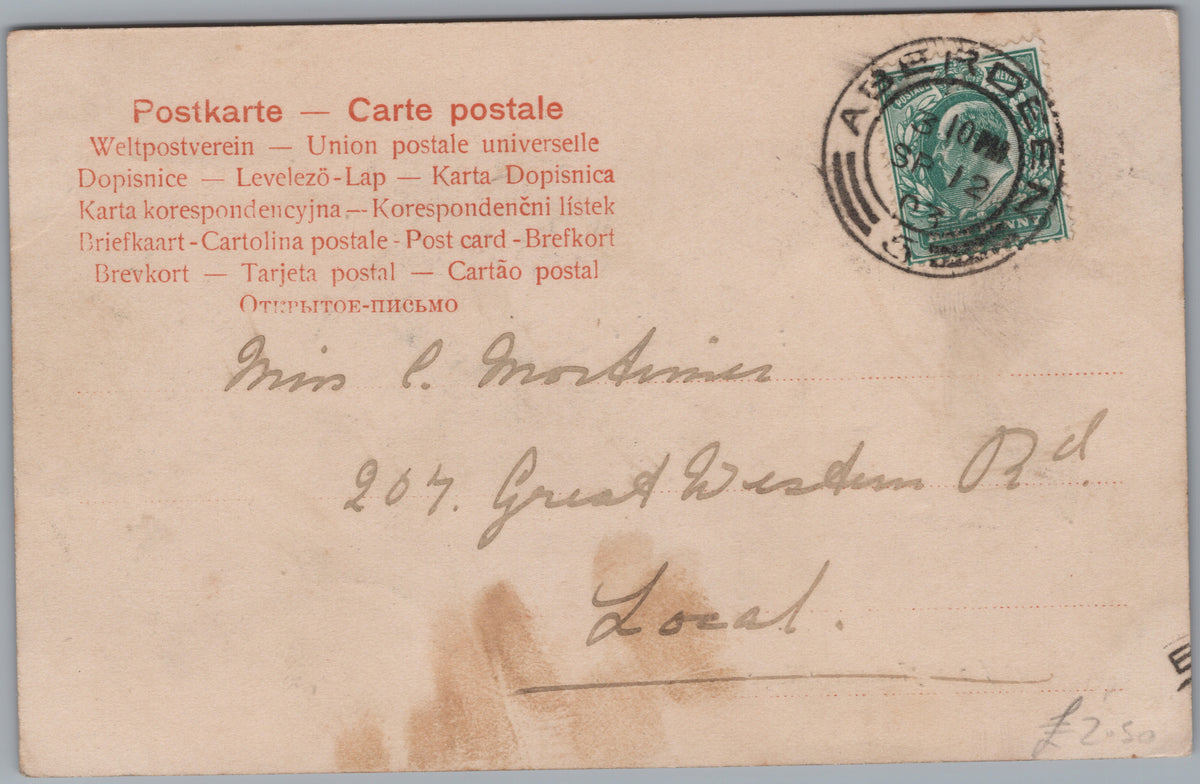 Postkarte — Carte postale
Weltpostverein — Union postale universelle
Dopisnice — Levelező-Lap — Karta Dopisnica
Karta korespondencyjna — Korespondenčni lístek
Briefkaart - Cartolina postale - Post card - Brefkort
Brevkort — Tarjeta postal — Cartão postal
Открытое-письмо
POSTAGE
REVENUE
ABERDEEN
10 PM
SP 12
03
Miss C. Mortimer
207. Great Western Rd.
Local.
E
£2.50